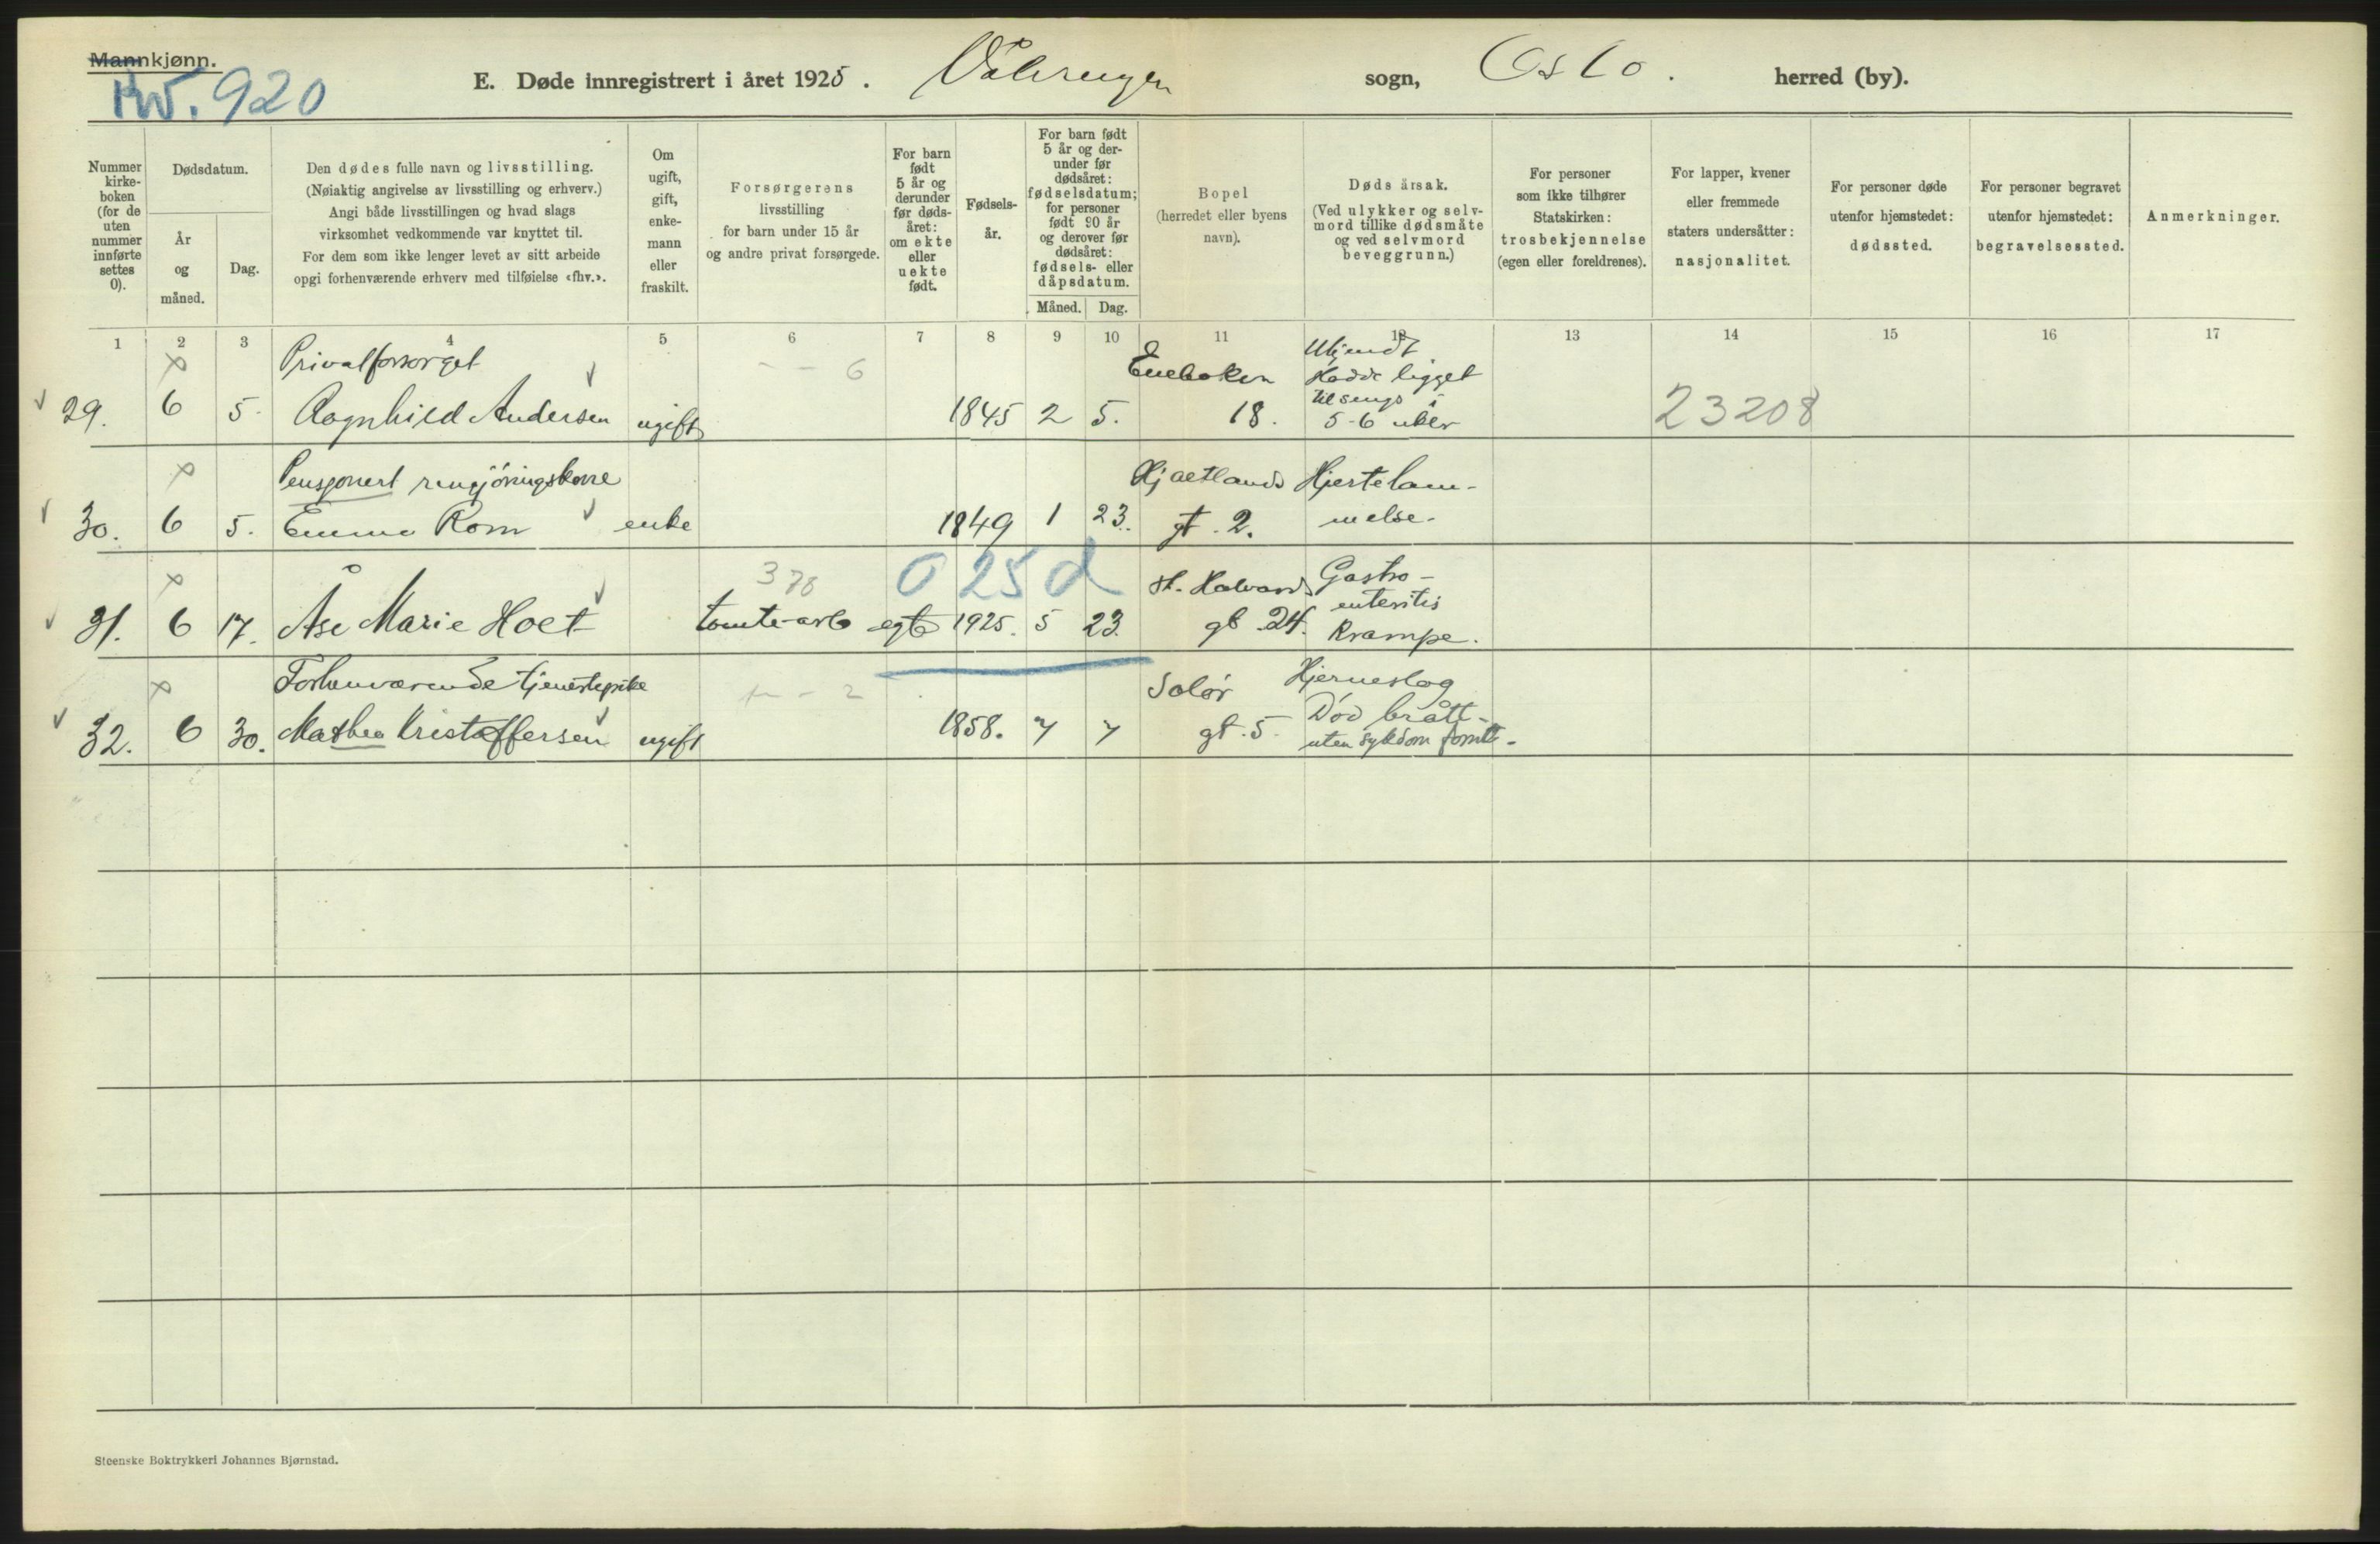 Mannkjønn.
Kv. 920
E. Døde innregistrert i året 1925. Vålerengen sogn, Oslo. herred (by).
Nummer kirke-boken (for de uten nummer innførte settes 0).
Dødsdatum.
År og måned.
Dag.
Den dødes fulle navn og livsstilling.
(Nøiaktig angivelse av livsstilling og erhverv.)
Angi både livsstillingen og hvad slags
virksomhet vedkommende var knyttet til.
For dem som ikke lenger levet av sitt arbeide
opgi forhenværende erhverv med tilføielse «fhv.».
Om ugift, gift, enke-mann eller fraskilt.
Forsørgerens
livsstilling
for barn under 15 år
og andre privat forsørgede.
For barn født 5 år og derunder før døds-året: om ekte eller uekte født.
Fødsels-år.
For barn født 5 år og der-under før dødsåret: fødselsdatum; for personer født 90 år og derover før dødsåret: fødsels- eller dåpsdatum.
Måned. Dag.
Bopel
(herredet eller byens
navn).
Døds årsak.
(Ved ulykker og selv-
mord tillike dødsmåte
og ved selvmord
beveggrunn.)
For personer
som ikke tilhører
Statskirken:
trosbekjennelse
(egen eller foreldrenes).
For lapper, kvener
eller fremmede
staters undersåtter:
nasjonalitet.
For personer døde
utenfor hjemstedet:
dødssted.
For personer begravet
utenfor hjemstedet:
begravelsessted.
Anmerkninger.
1 2 3 4 5 6 7 8 9 10 11 12 13 14 15 16 17
Privatforsørget - - 6 Ukjendt
Hadde ligget
til sengs i
29. 6 5. Ragnhild Andersen ugift 1845 2 5. 18. 5-6 uker 23208
Pensjonert rengjöringskone Hjaltlands Hjertelam-
30. 6 5. Emma Rom enke 1849 1 23. gt. 2. melse.
378 0 25 d St. Halvards Gastro-
enteritis
31. 6 17. Åse Marie Hoet tomte-arb egte 1925. 5 23. gt. 24. Krampe.
Forhenværende tjenestepike - 2 Solør Hjerneslag
Död brått-
32. 6 30. Mathea Kristoffersen ugift 1858. 7 7 gt. 5. uten sykdom forut-
Steenske Boktrykkeri Johannes Bjørnstad.